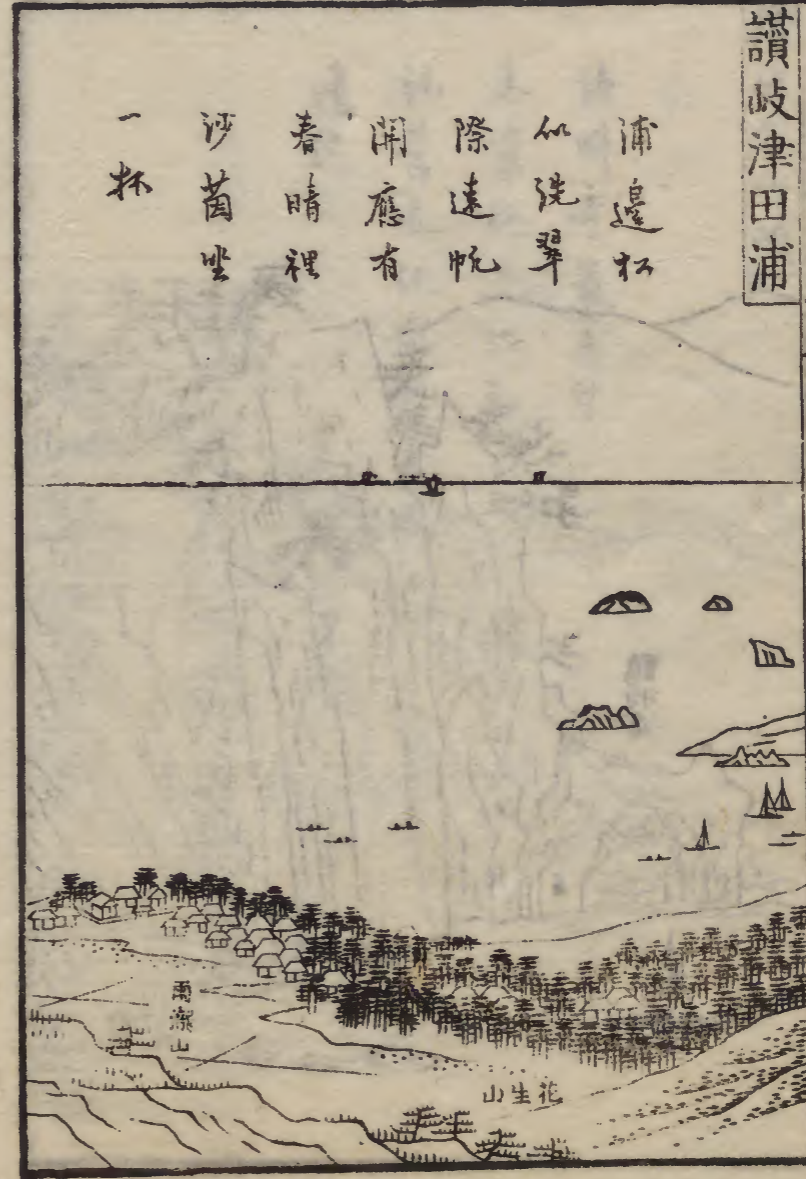 讃岐津田浦
浦邉松
似洗翠
際遠帆
開應有
春晴裡
沙茵坐
一杯
雨瀑山
花生山